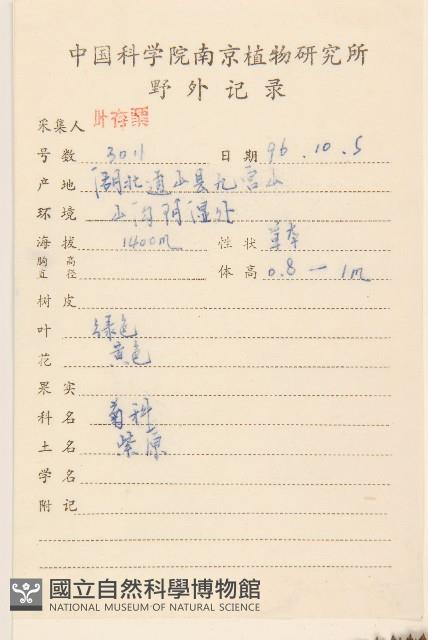 中国科学院南京植物研究所
野外记录
采集人 叶存粟
号数 3011 日期 96.10.5
产地 湖北通山县九宫山
环境 山沟阴湿处
海拔 1400m 性状 草本
胸高直径 体高 0.8—1m
树皮
叶 绿色
花 黄色
果实
科名 菊科
土名 紫
学名
附记
國立自然科學博物館
NATIONAL MUSEUM OF NATURAL SCIENCE